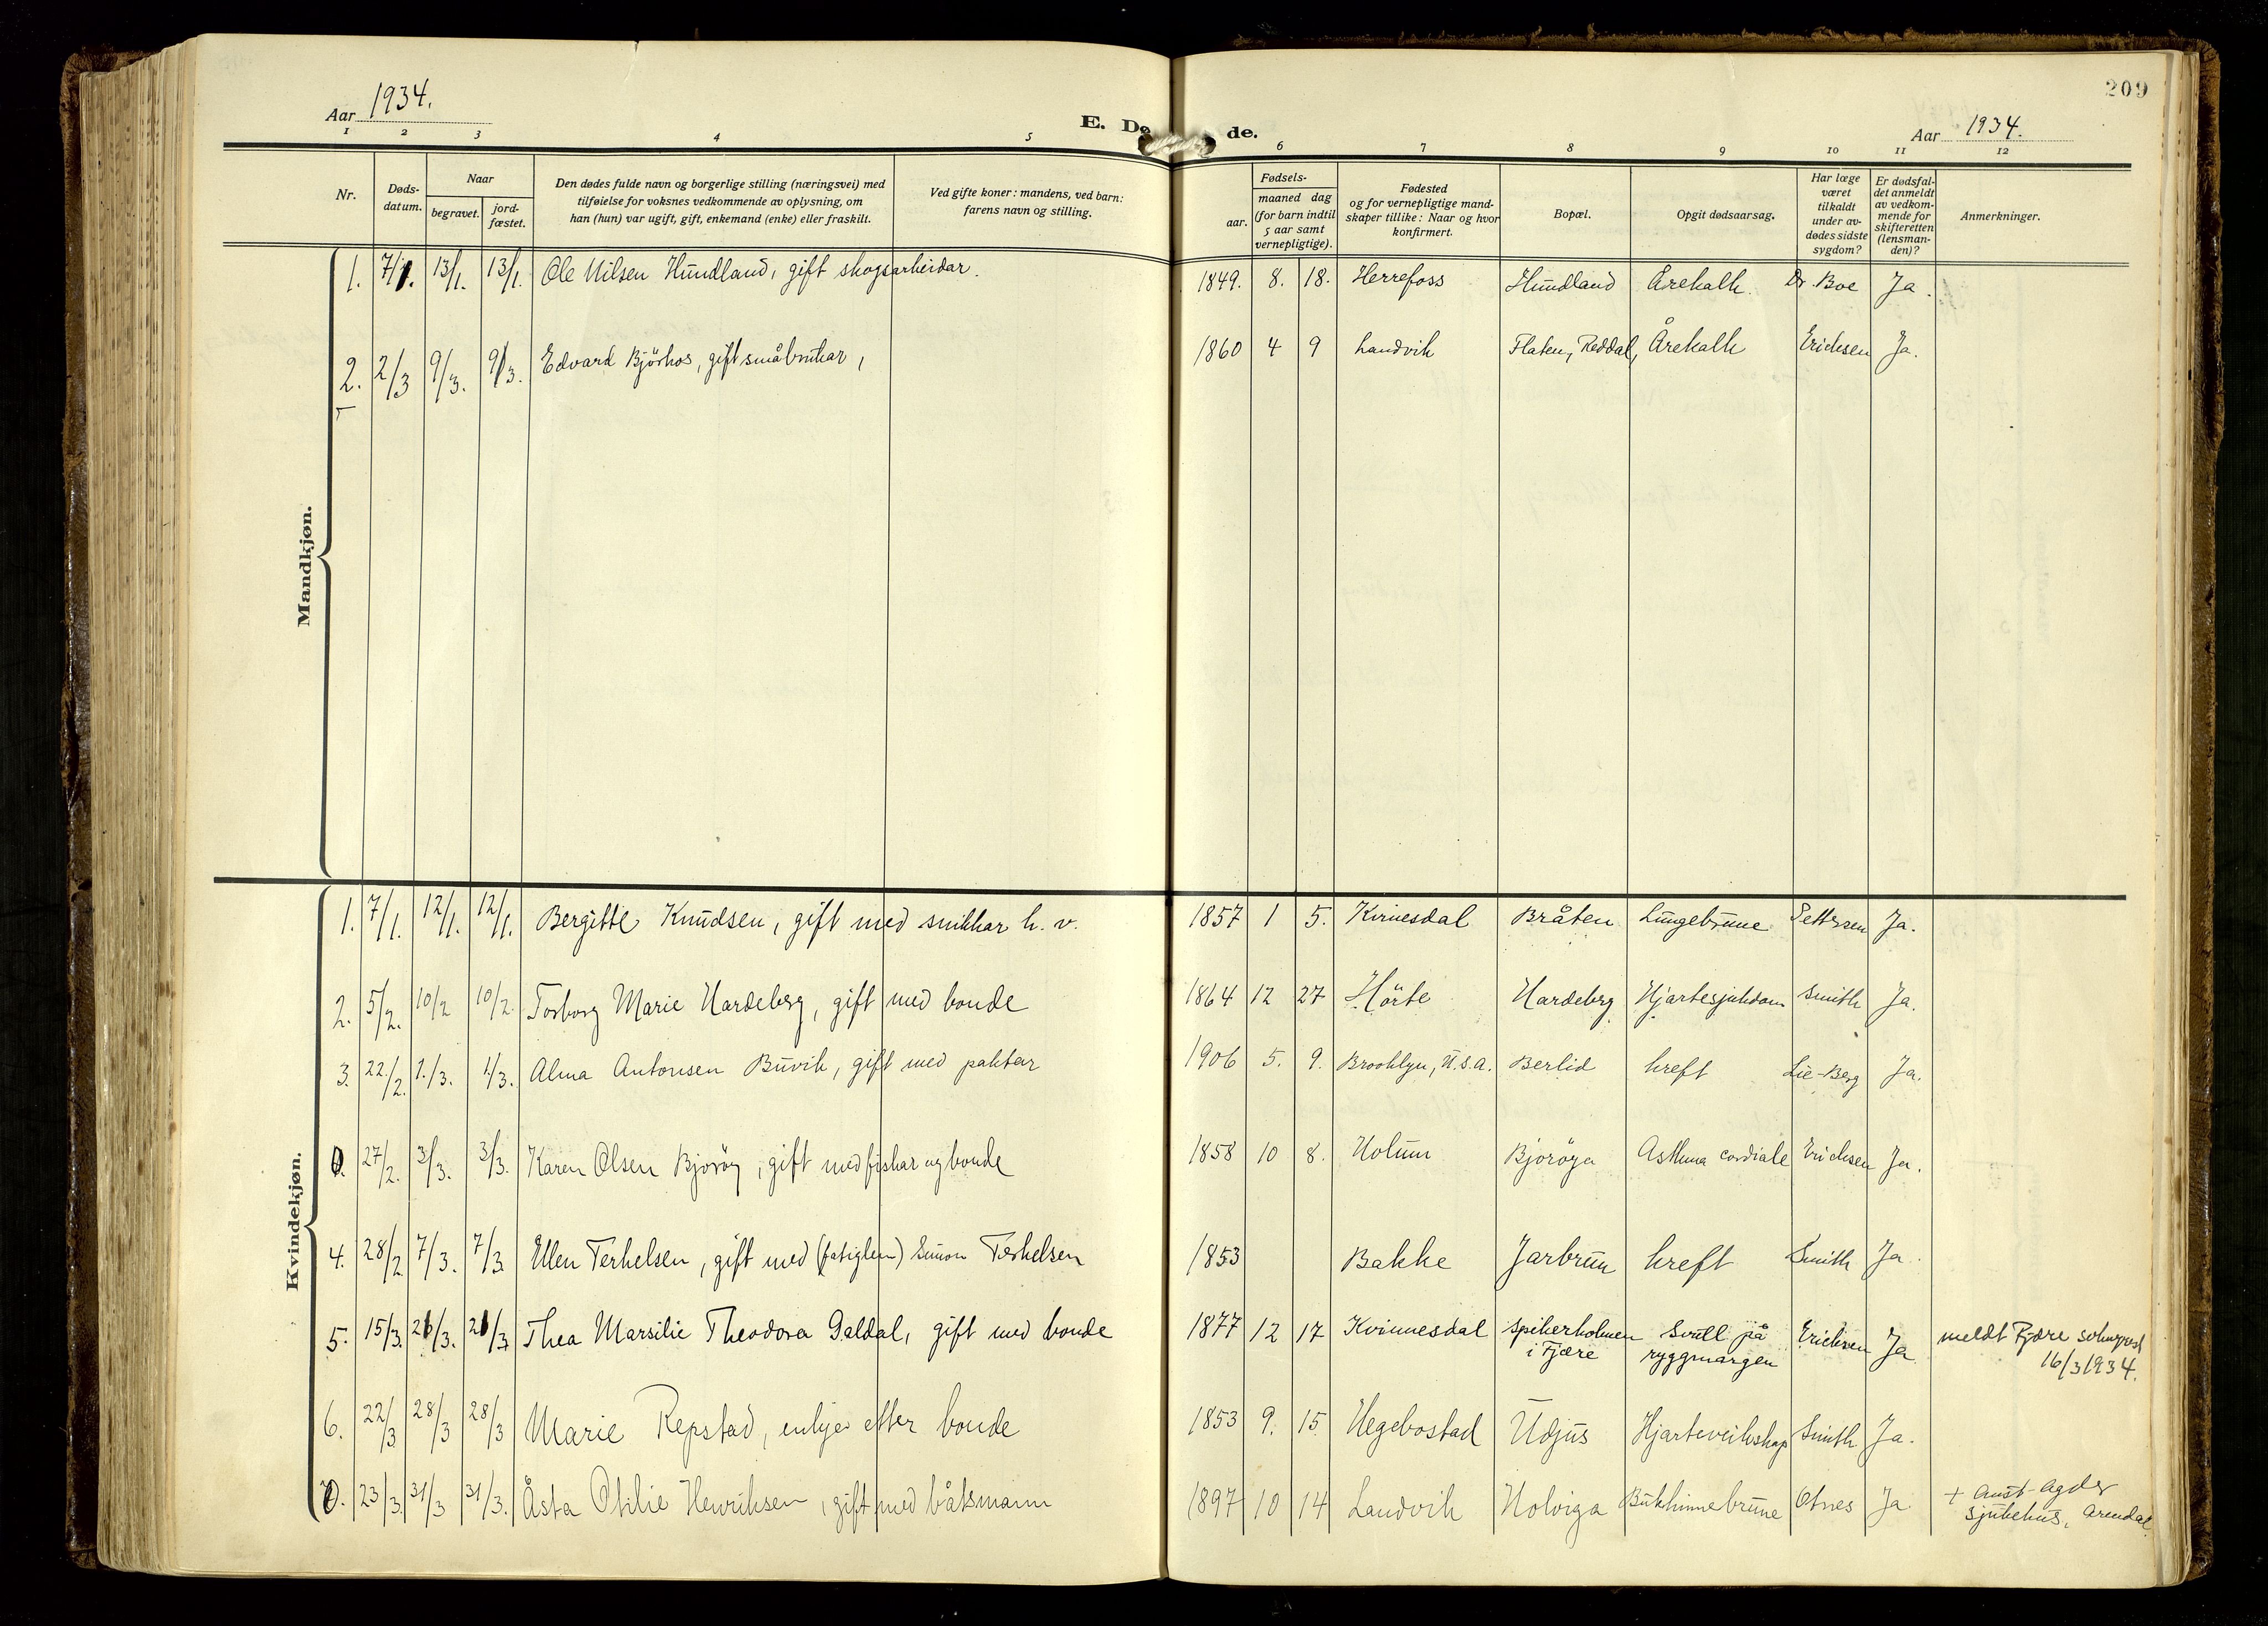 209
Aar 1934.
E. Dø de.
Aar 1934.
1 2 3 4 5 6 7 8 9 10 11 12
Nr.
Døds-
datum.
Naar
begravet.
jord-
fæstet.
Den dødes fulde navn og borgerlige stilling (næringsvei) med
tilføielse for voksnes vedkommende av oplysning, om
han (hun) var ugift, gift, enkemand (enke) eller fraskilt.
Ved gifte koner: mandens, ved barn:
farens navn og stilling.
Fødsels-
aar.
maaned dag
(for barn indtil
5 aar samt
vernepligtige).
Fødested
og for vernepligtige mand-
skaper tillike: Naar og hvor
konfirmert.
Bopæl.
Opgit dødsaarsag.
Har læge
været
tilkaldt
under av-
dødes sidste
sygdom?
Er dødsfal-
det anmeldt
av vedkom-
mende for
skifteretten
(lensman-
den)?
Anmerkninger.
Mandkjøn.
1. 7/1. 13/1. 13/1. Ole Nilsen Hundland, gift skogsarbeidar. 1849. 8. 18. Herrefoss Hundland Årekalk Dr. Boe Ja.
2. 2/3 9/3. 9/3. Edvard Bjórkos, gift småbrukar, 1860 4 9 Landvik Flaten, Reddal, Årekalk Erichsen Ja.
Kvindekjøn.
1. 7/1. 12/1. 12/1. Bergitte Knudsen, gift med snikkar h. v. 1857 1 5. Kvinesdal Bråten Lungebrune Pettersen Ja.
2. 5/2. 10/2 10/2. Torborg Marie Hardeberg, gift med bonde 1864 12 27 Hörte Hardeberg Hjartesjukdom Smith Ja.
3. 22/2. 1./3. 1/3. Alma Antonsen Buvik, gift med paktar 1906 5. 9. Brooklyn, U.S.A. Berlid kreft Lie-Berg Ja.
27/2. 3/3. 3/3. Karen Olsen Bjoröy, gift med fiskar og bonde 1858 10 8. Holum Bjoröya Asthma cordiale Erichsen Ja.
4. 28/2 7/3. 7/3 Ellen Terkelsen, gift med (fatiglem) Simon Terkelsen 1853 Bakke Jarbrun kreft Smith Ja.
5. 15/3. 21/3. 21/3 Thea Marsilie Theodora Galdal, gift med bonde 1877 12 17 Kvinnesdal Spikerholmen Svull på Erichsen Ja meldt Fjære
i Fjære ryggmargen 16/3 1934.
6. 22/3 28/3 28/3 Marie Repstad, enkje efter bonde 1853 9. 15 Hegebostad Udjus Hjarteveikskap Smith Ja.
23/3. 31/3 31/3. Åsta Otilie Henriksen, gift med båtsmann 1897 10 14 Landvik Holviga Bukhinnebrune Otnes Ja + Aust-Agder
sjukehus, Arendal.